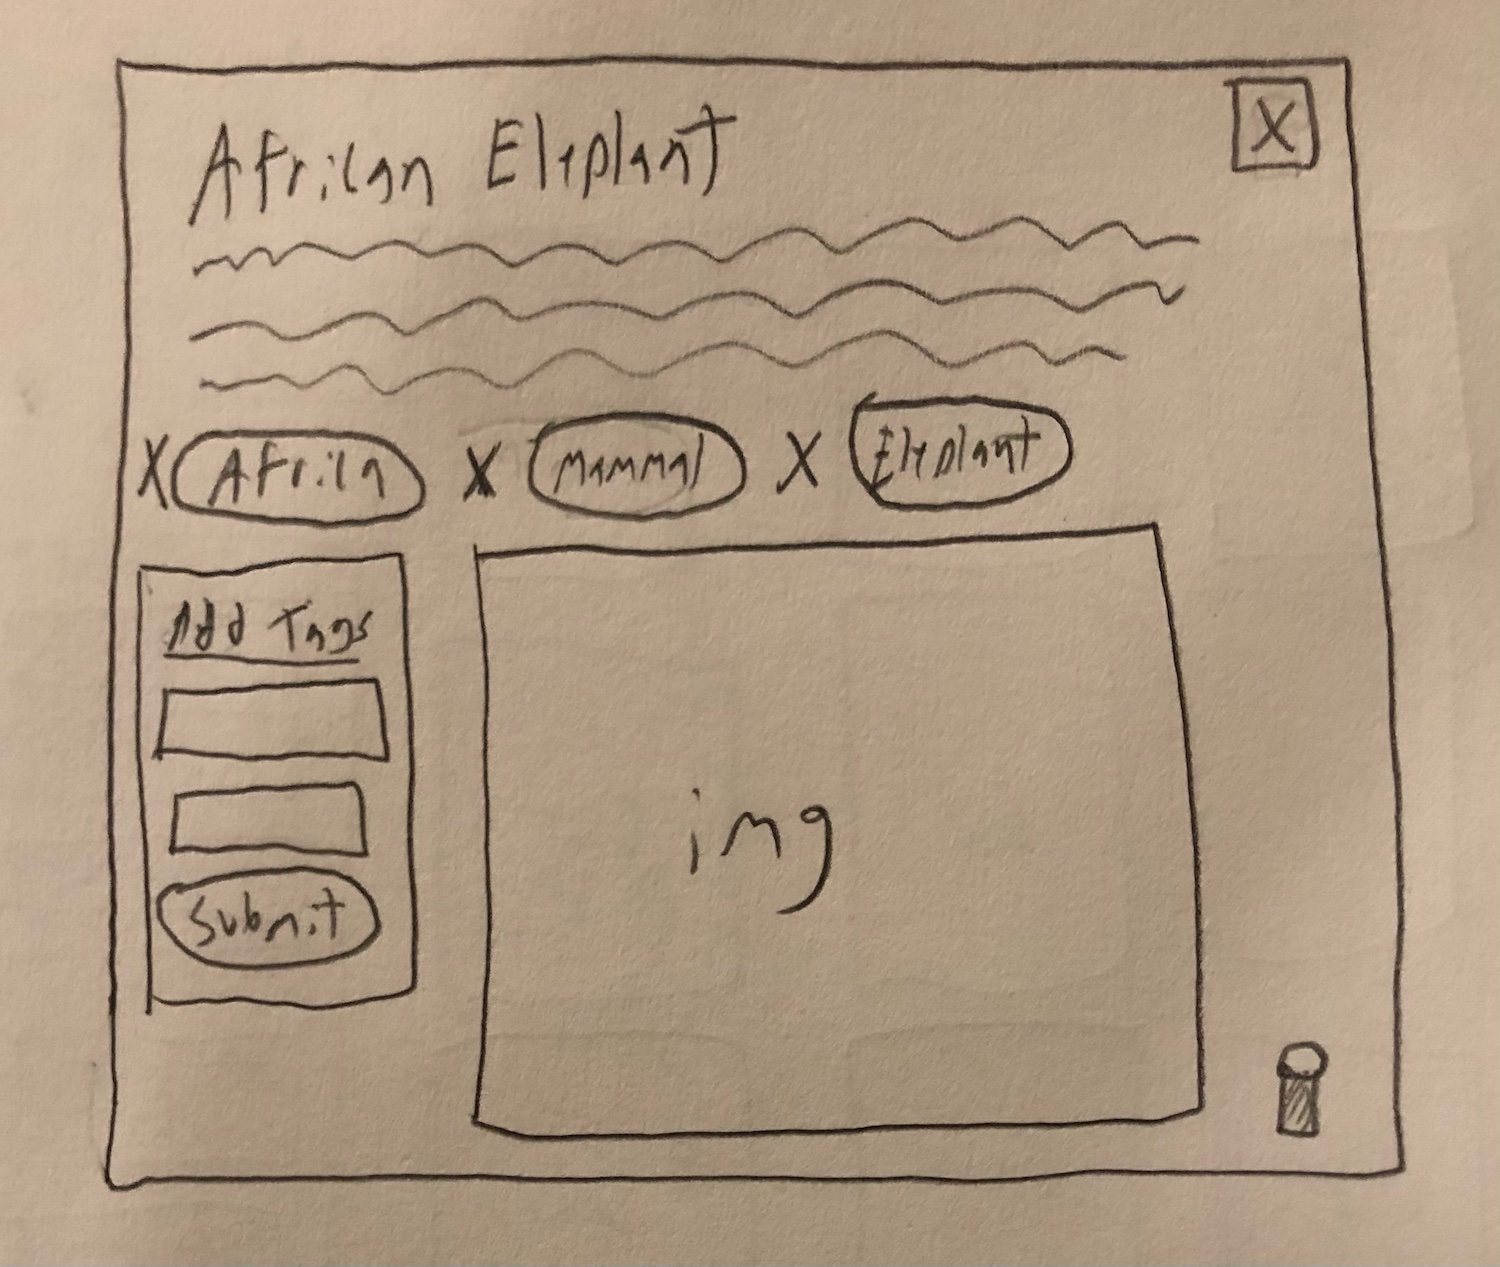 African Elephant
X
X Africa X Mammal X Elephant
Add Tags
Submit
img